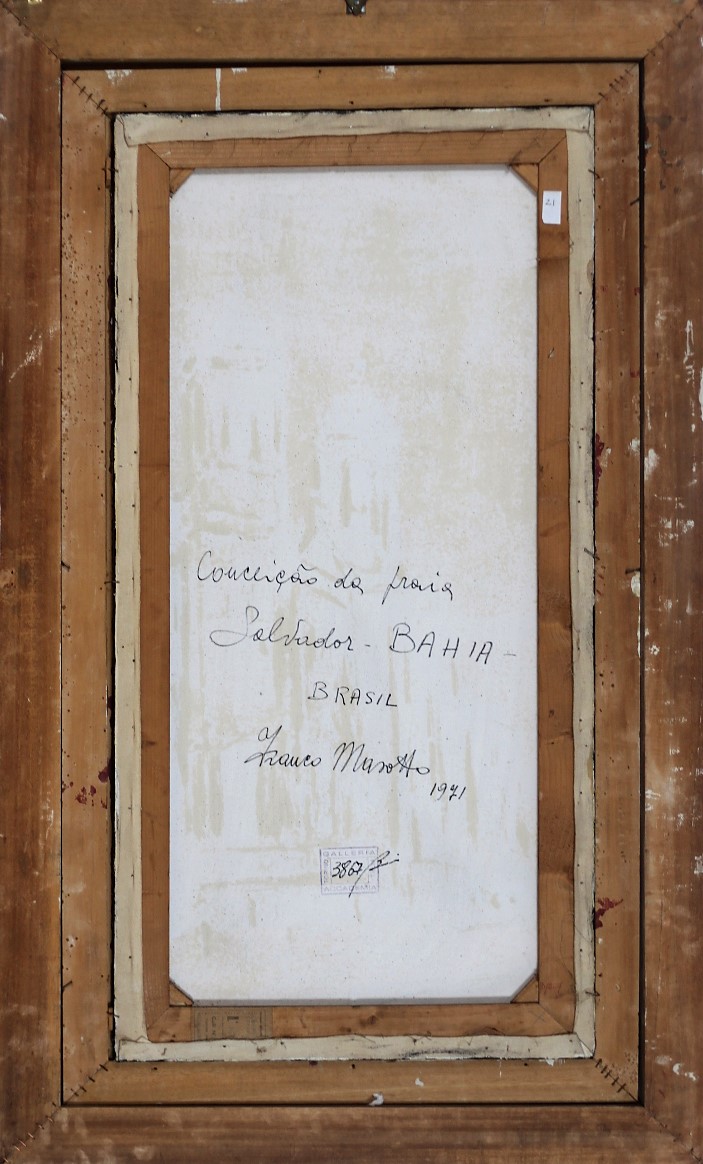 21
Conceição da praia
Salvador - BAHIA -
BRASIL
Franco Musotto
1971
GALLERIA
3867/
ACCADEMIA